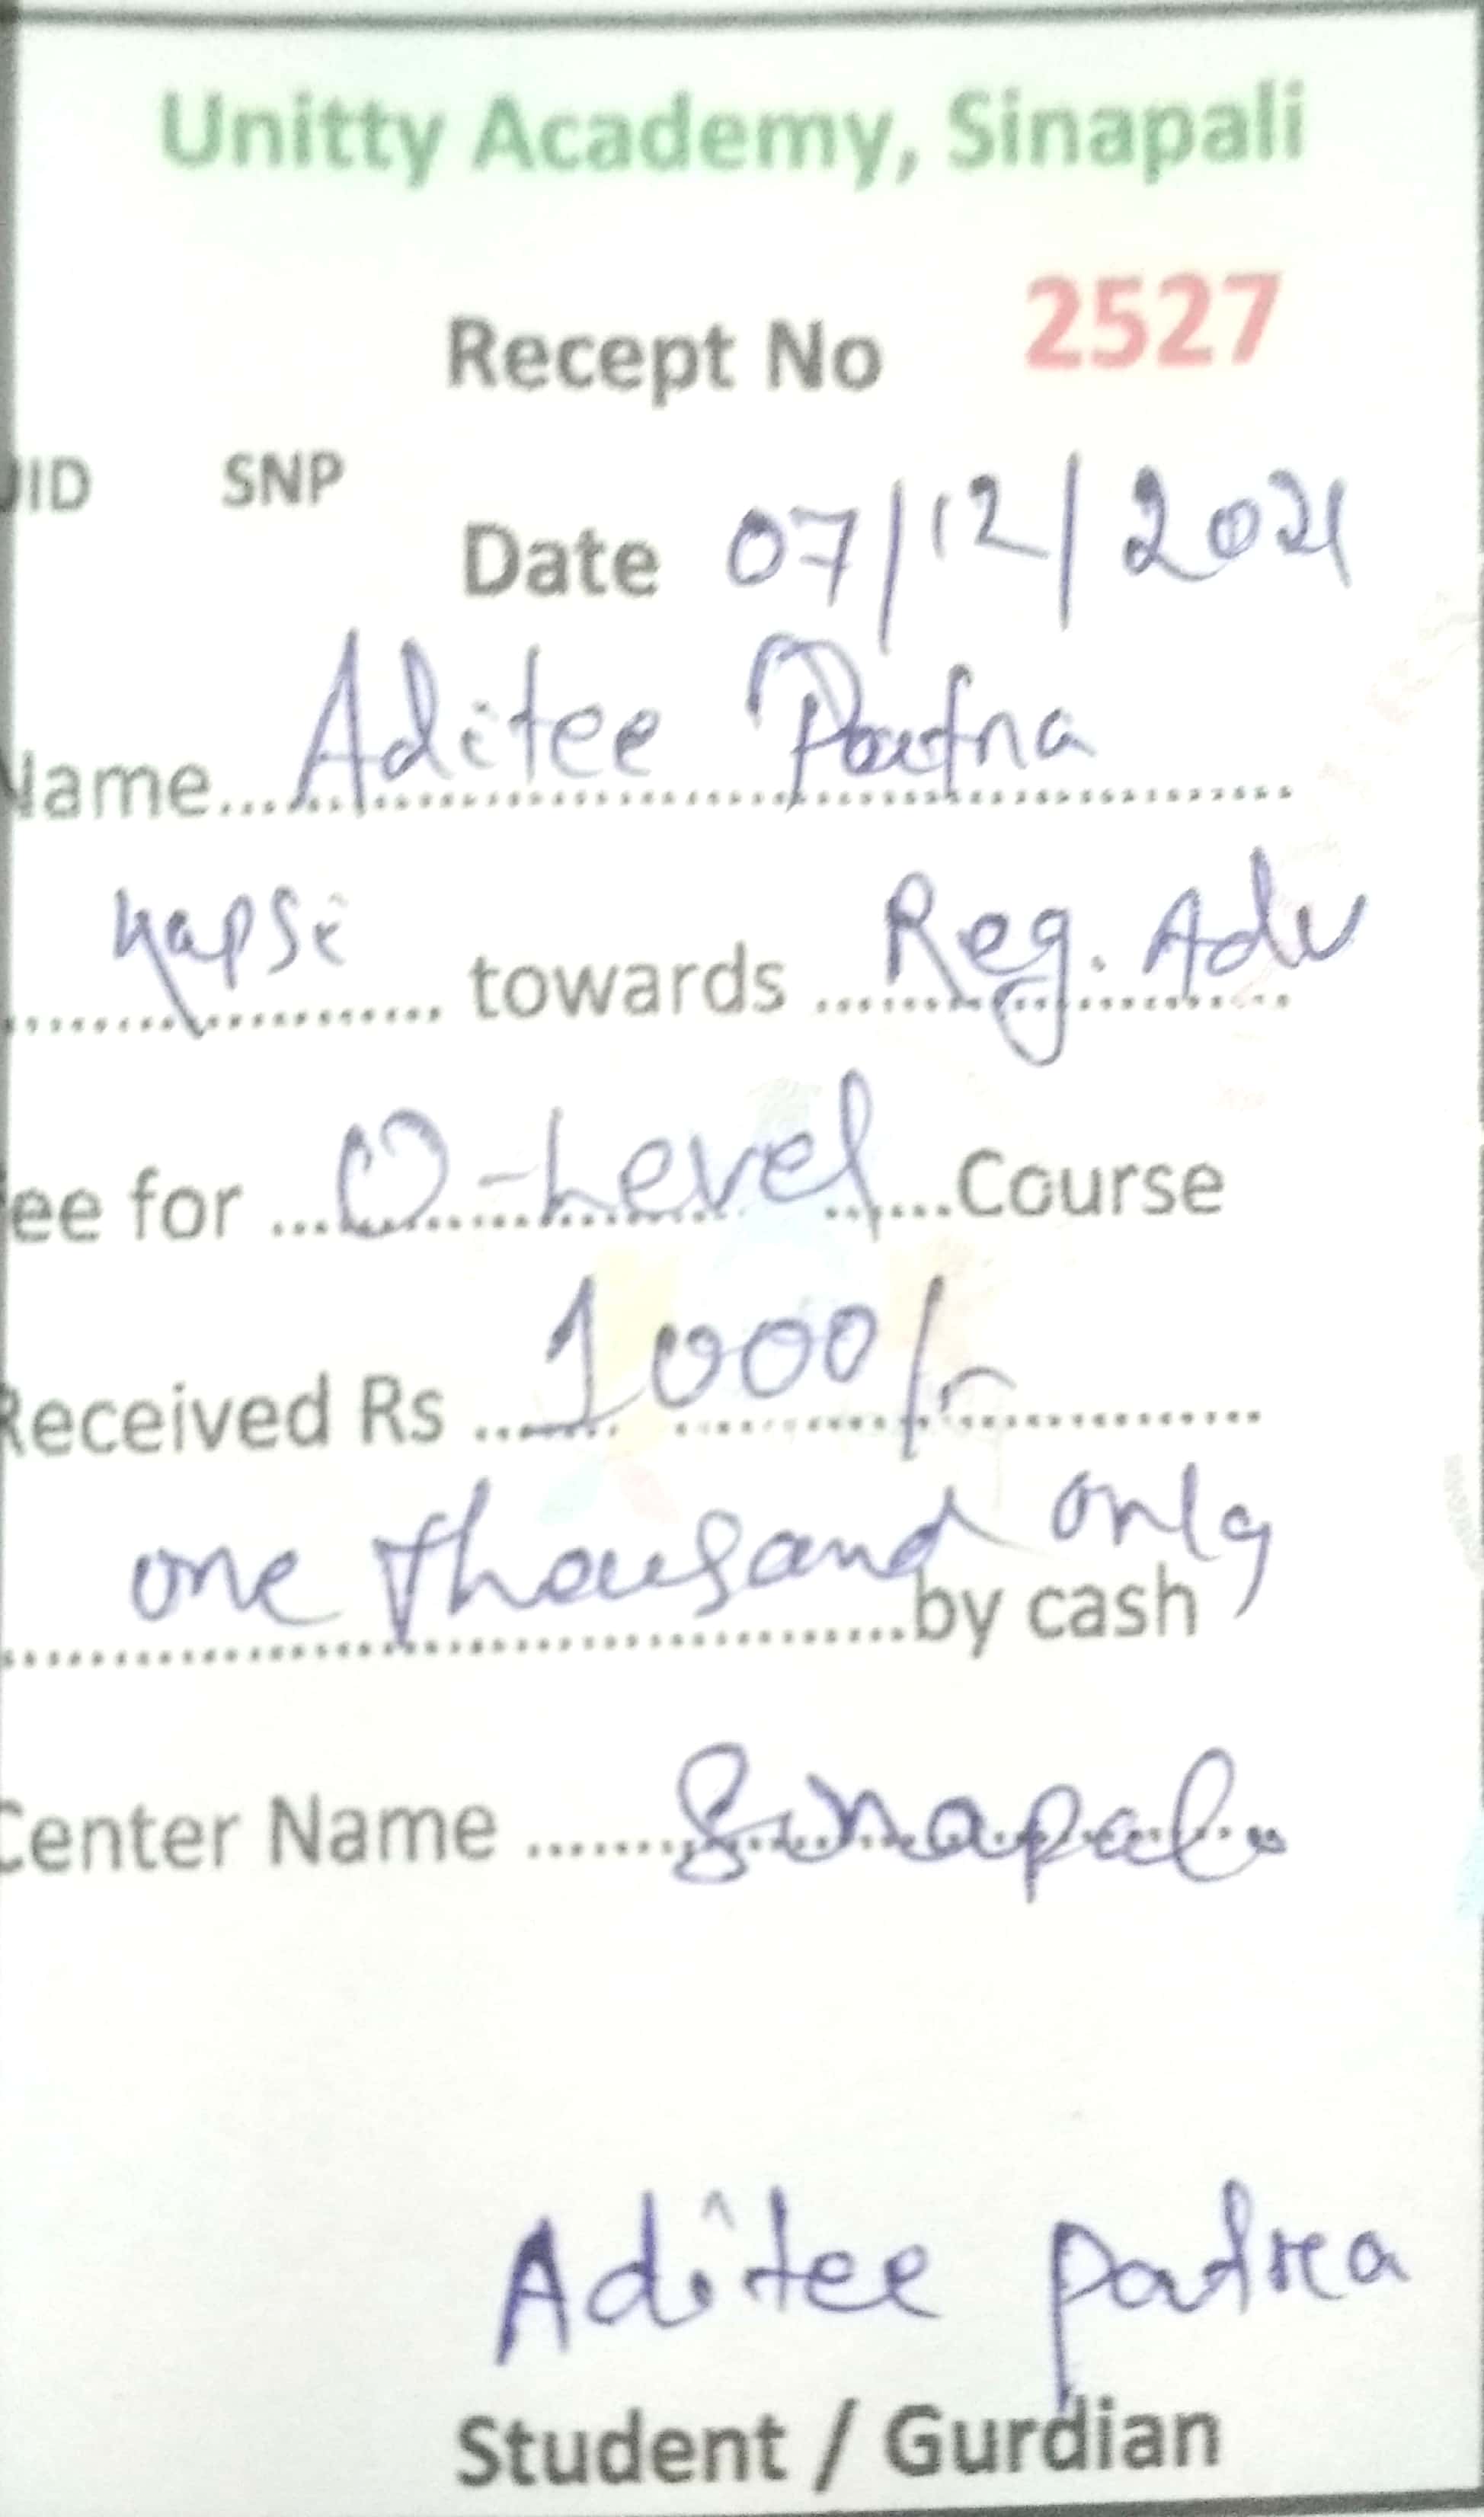 Unitty Academy, Sinapali
Recept No 2527
UID SNP
Date 07/12/2021
Name........ Aditee Patra
........ towards ........ Reg. Adv
ee for ........ O-Level ........Course
Received Rs ........ 1000/-
one thousand only
........by cash
Center Name ........ Sinapali
Aditee patra
Student / Gurdian